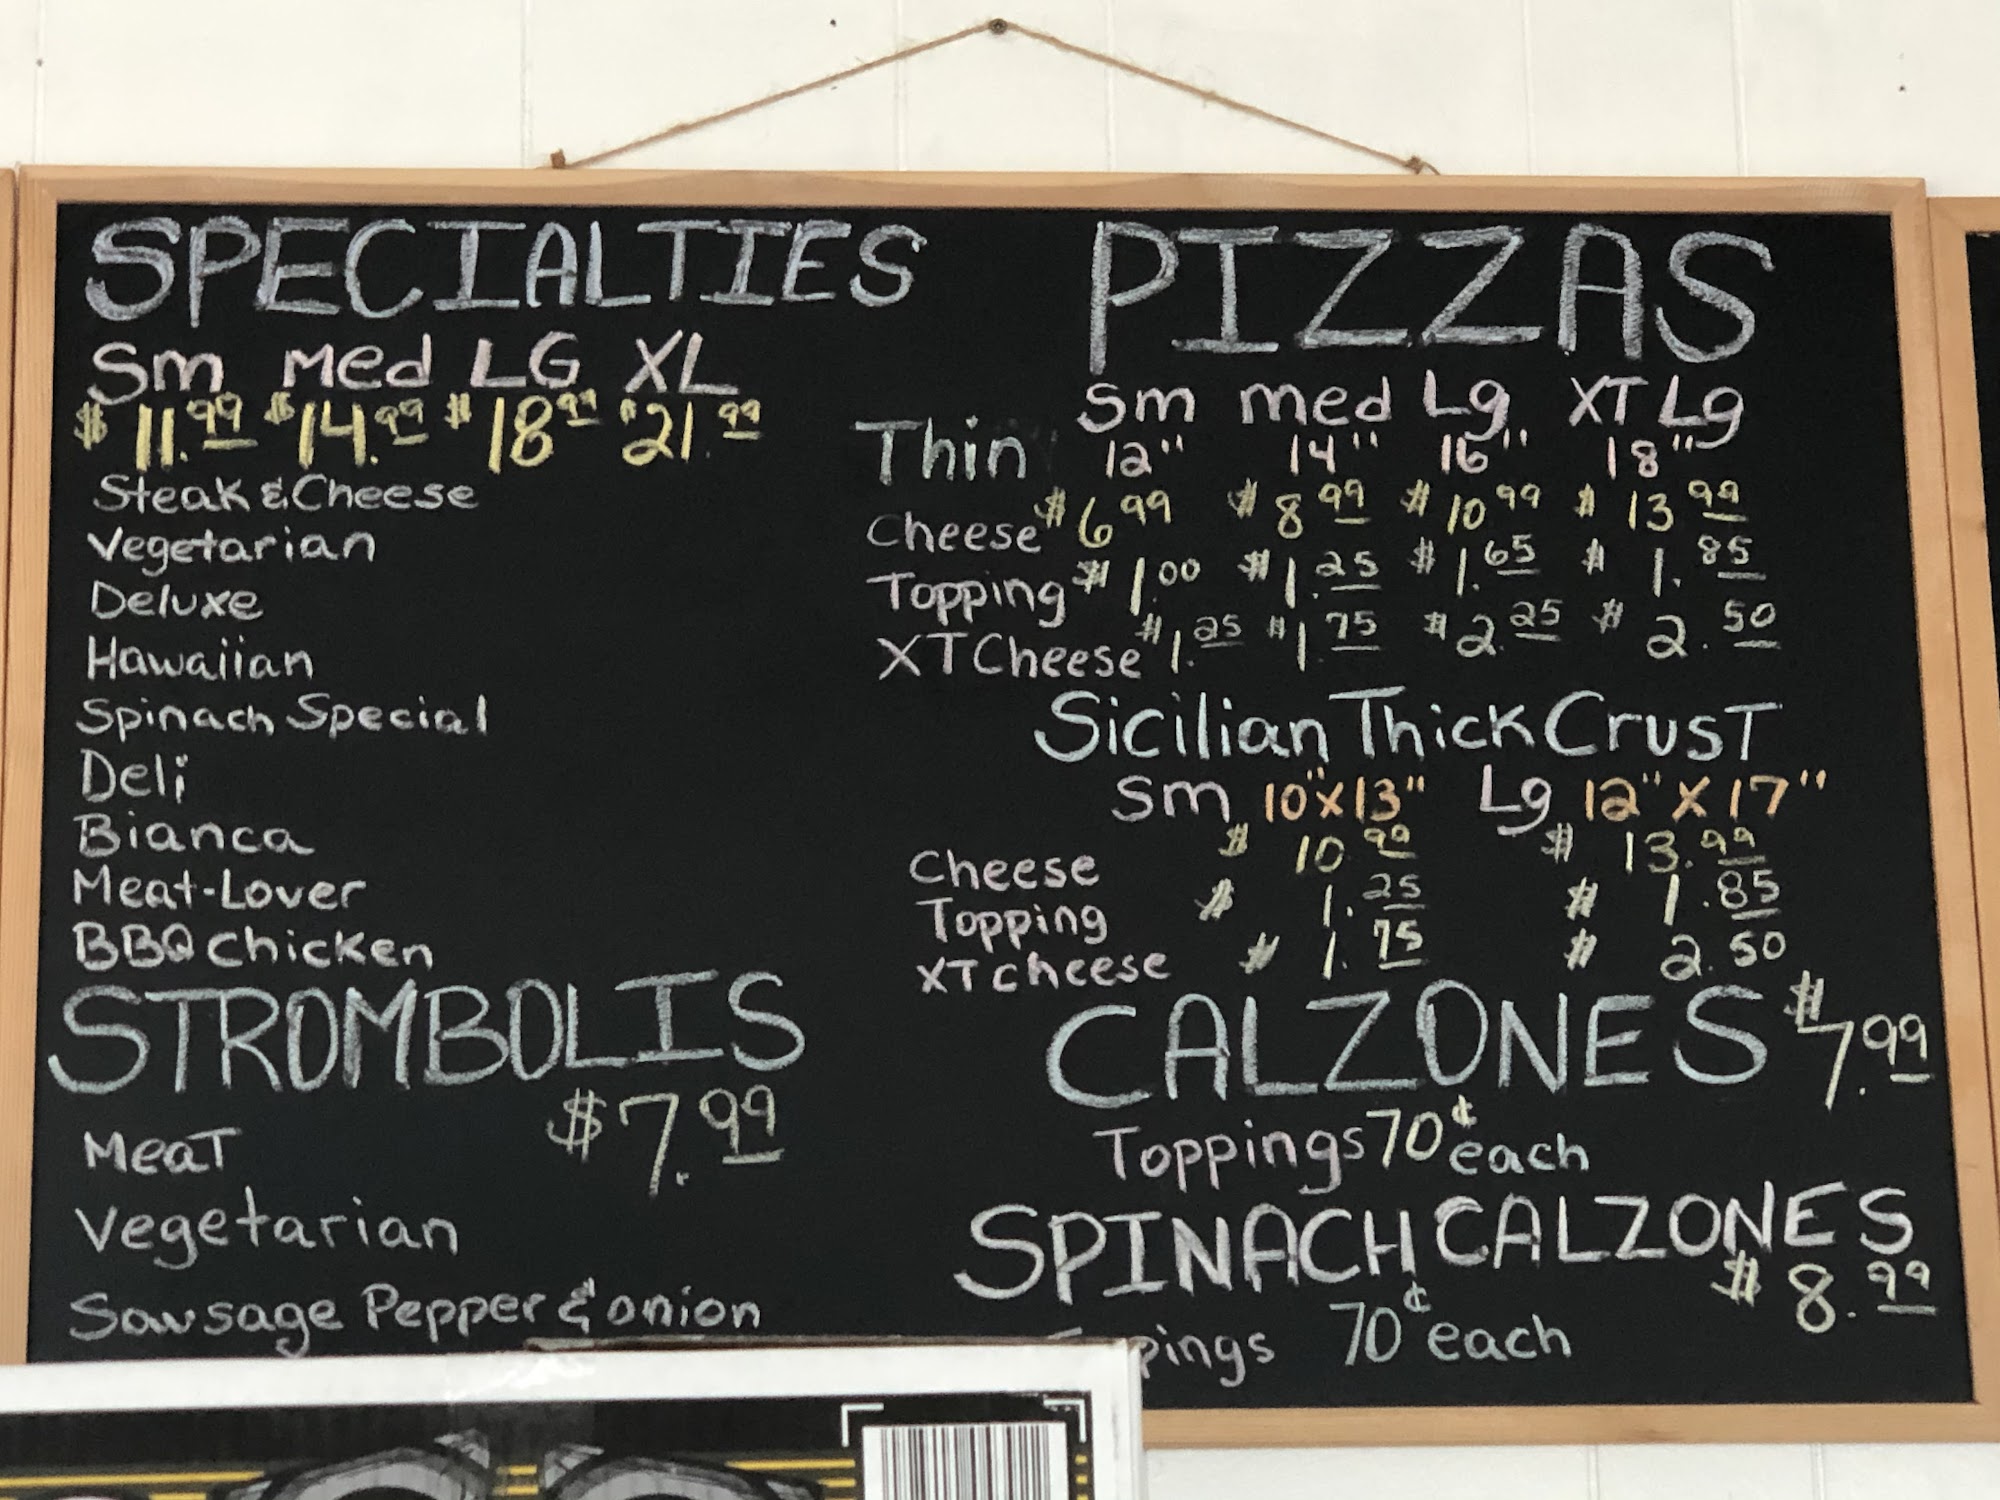 SPECIALTIES
Sm Med LG XL
$11.99 $14.99 $18.99 $21.99
Steak & Cheese
Vegetarian
Deluxe
Hawaiian
Spinach Special
Deli
Bianca
Meat-Lover
BBQ Chicken
STROMBOLIS
$7.99
Meat
Vegetarian
Sausage Pepper & onion
PIZZAS
Sm med Lg XT Lg
Thin 12" 14" 16" 18"
Cheese $6.99 $8.99 $10.99 $13.99
Topping $1.00 $1.25 $1.65 $1.85
XT Cheese $1.25 $1.75 $2.25 $2.50
Sicilian Thick Crust
Sm 10"x13" Lg 12"x17"
Cheese $10.99 $13.99
Topping $1.25 $1.85
XT cheese $1.75 $2.50
CALZONES $7.99
Toppings 70¢ each
SPINACH CALZONES
$8.99
pings 70¢ each